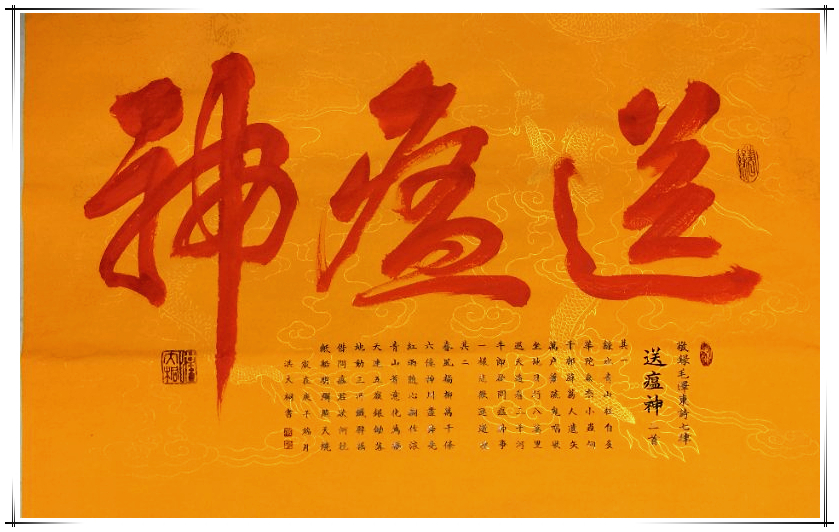 送瘟神
敬録毛澤東詩七律
送瘟神 一首
其一
緑水青山枉自多
華佗無奈小蟲何
千邨薜荔人遺矢
萬户蕭疏鬼唱歌
坐地日行八萬里
巡天遥看一千河
牛郎欲問瘟神事
一樣悲歡逐逝波
其二
春風楊柳萬千條
六億神州盡舜堯
紅雨隨心翻作浪
青山着意化為橋
天連五嶺銀鋤落
地動三河鐵臂摇
借問瘟君欲何往
紙船明燭照天燒
歲在庚子端月
洪大桐書